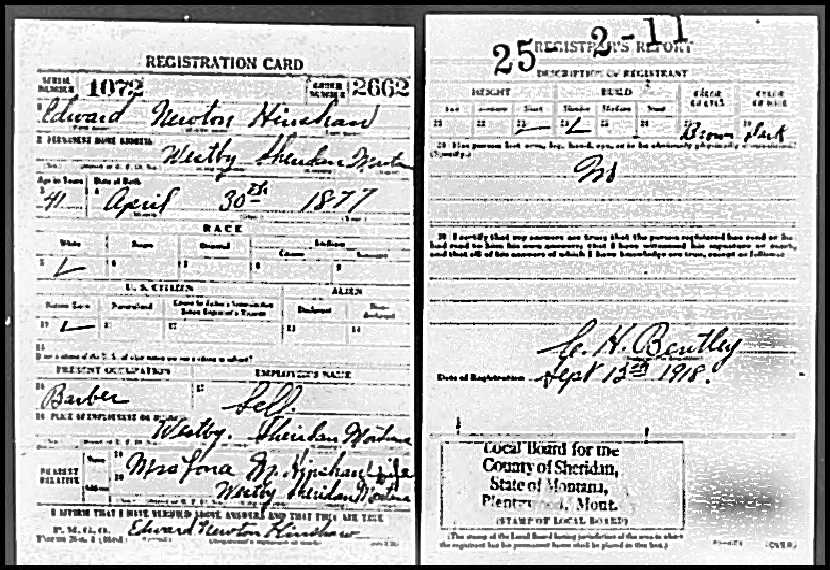 REGISTRATION CARD
SERIAL NUMBER 1072 ORDER NUMBER 2662
Edward Newton Hinshaw
Westby Sheridan Montana
Age in Years Date of Birth
41 April 30th 1877
RACE
White Negro Oriental Indian
Citizen
U. S. CITIZEN ALIEN
Native Born Naturalized
PRESENT OCCUPATION EMPLOYER'S NAME
Barber Self.
Westby. Sheridan Montana
NEAREST RELATIVE Name Mrs M. Hinshaw Wife
Address Westby Sheridan Montana
I AFFIRM THAT I HAVE VERIFIED ABOVE ANSWERS AND THAT THEY ARE TRUE
Edward Newton Hinshaw
25-2-11
REGISTRAR'S REPORT
DESCRIPTION OF REGISTRANT
HEIGHT BUILD COLOR OF EYES COLOR OF HAIR
Tall Medium Short Slender Medium Stout
21 22 23 24 25 26 Brown Dark
29 Has person lost arm, leg, hand, eye, or is he obviously physically disqualified?
(Specify.)
No
30 I certify that my answers are true; that the person registered has read or has
had read to him his own answers; that I have witnessed his signature or mark,
and that all of his answers of which I have knowledge are true, except as follows:
C. H. Bentley
Date of Registration Sept 12th 1918.
Local Board for the
County of Sheridan,
State of Montana,
Plentywood, Mont.
(STAMP OF LOCAL BOARD)
(The stamp of the Local Board having jurisdiction of the area in which
the registrant has his permanent home shall be placed in this box.)